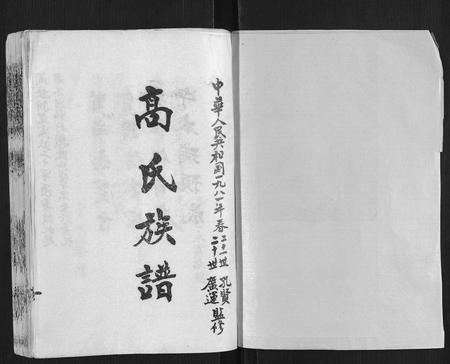 中華人民共和国一九八一年春
二十一世 孔賢
二十世 廣運 監修
高氏族譜